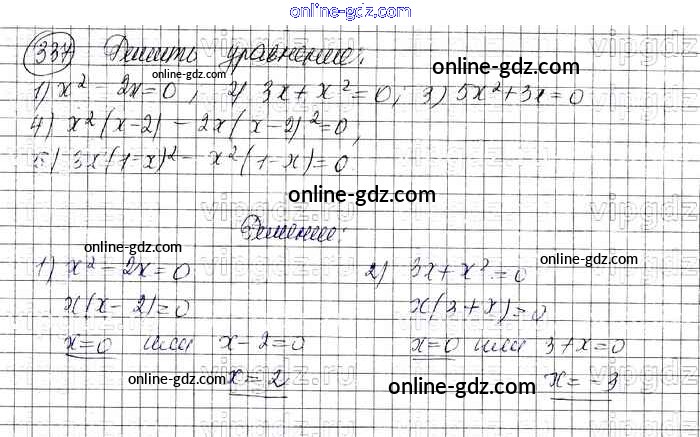 online-gdz.com
337) Решить уравнение:
1) x² - 2x = 0, 2) 3x + x² = 0; 3) 5x² + 3x = 0
4) x²(x-2) - 2x(x-2)² = 0,
5) 3x(1-x)² - x²(1-x) = 0
online-gdz.com
online-gdz.com
online-gdz.com
Решение:
1) x² - 2x = 0
x(x-2) = 0
x = 0 или x - 2 = 0
x = 2
2) 3x + x² = 0
x(3+x) = 0
x = 0 или 3 + x = 0
x = -3
online-gdz.com
online-gdz.com
online-gdz.com
online-gdz.com
vipgdz.ru